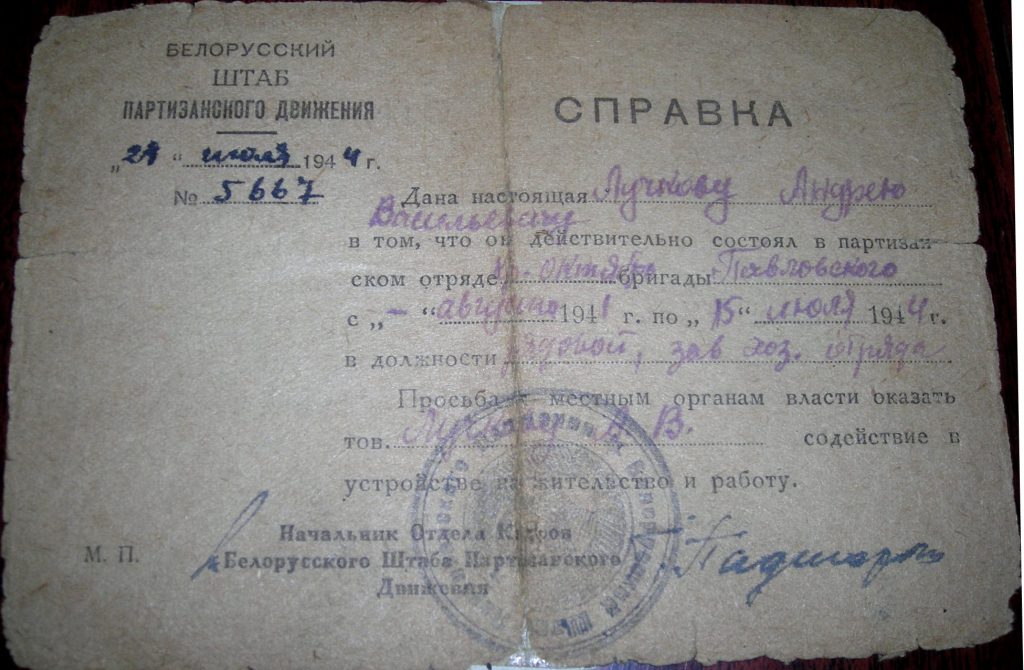 БЕЛОРУССКИЙ
ШТАБ
ПАРТИЗАНСКОГО ДВИЖЕНИЯ
СПРАВКА
„ “ июля 1944 г.
№ 5667
Дана настоящая Лучкову Андрею
Васильевичу
в том, что он действительно состоял в партизан-
ском отряде кр. октябрь бригады Павловского
с „ – “ августа 1941 г. по „ 15 “ июля 1944 г.
в должности рядовой, зав хоз. отряда
Просьба к местным органам власти оказать
тов. Лучкову А. В. содействие в
устройстве на жительство и работу.
М. П.
Начальник Отдела Кадров
Белорусского Штаба Партизанского
Движения